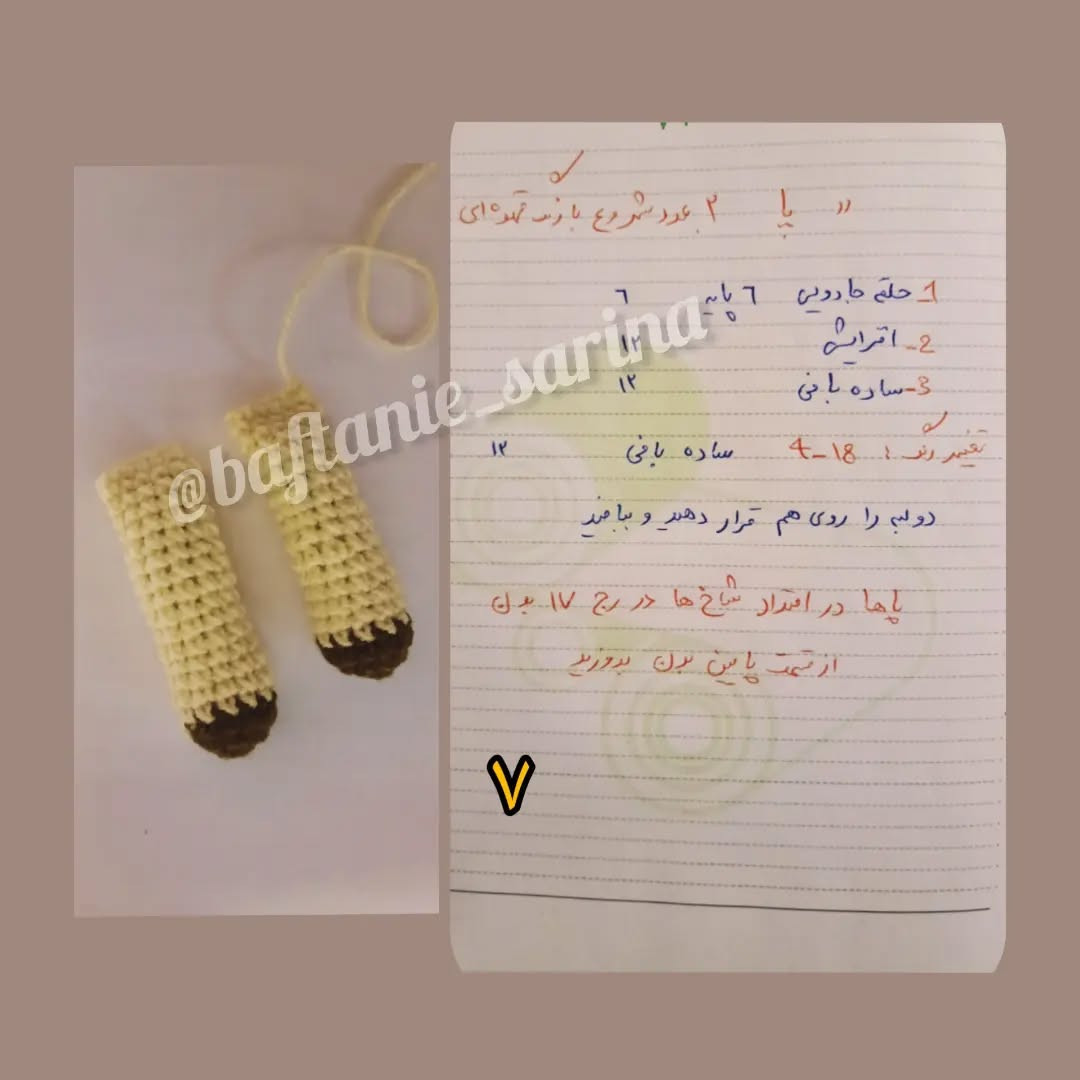 〃 پا ۲ عدد شروع با رنگ قهوه‌ای
1_ حلقه جادویی ٦ پایه ٦
2_ افزایش ۱۲
3_ ساده بافی ۱۲
تغییر رنگ : 18_4 ساده بافی ۱۲
دو لبه را روی هم قرار دهید و ببافید
پاها در امتداد شاخ ها در رج ۱۷ بدن
از قسمت پایین بدن بدوزید
@baftanie_sarina
۷